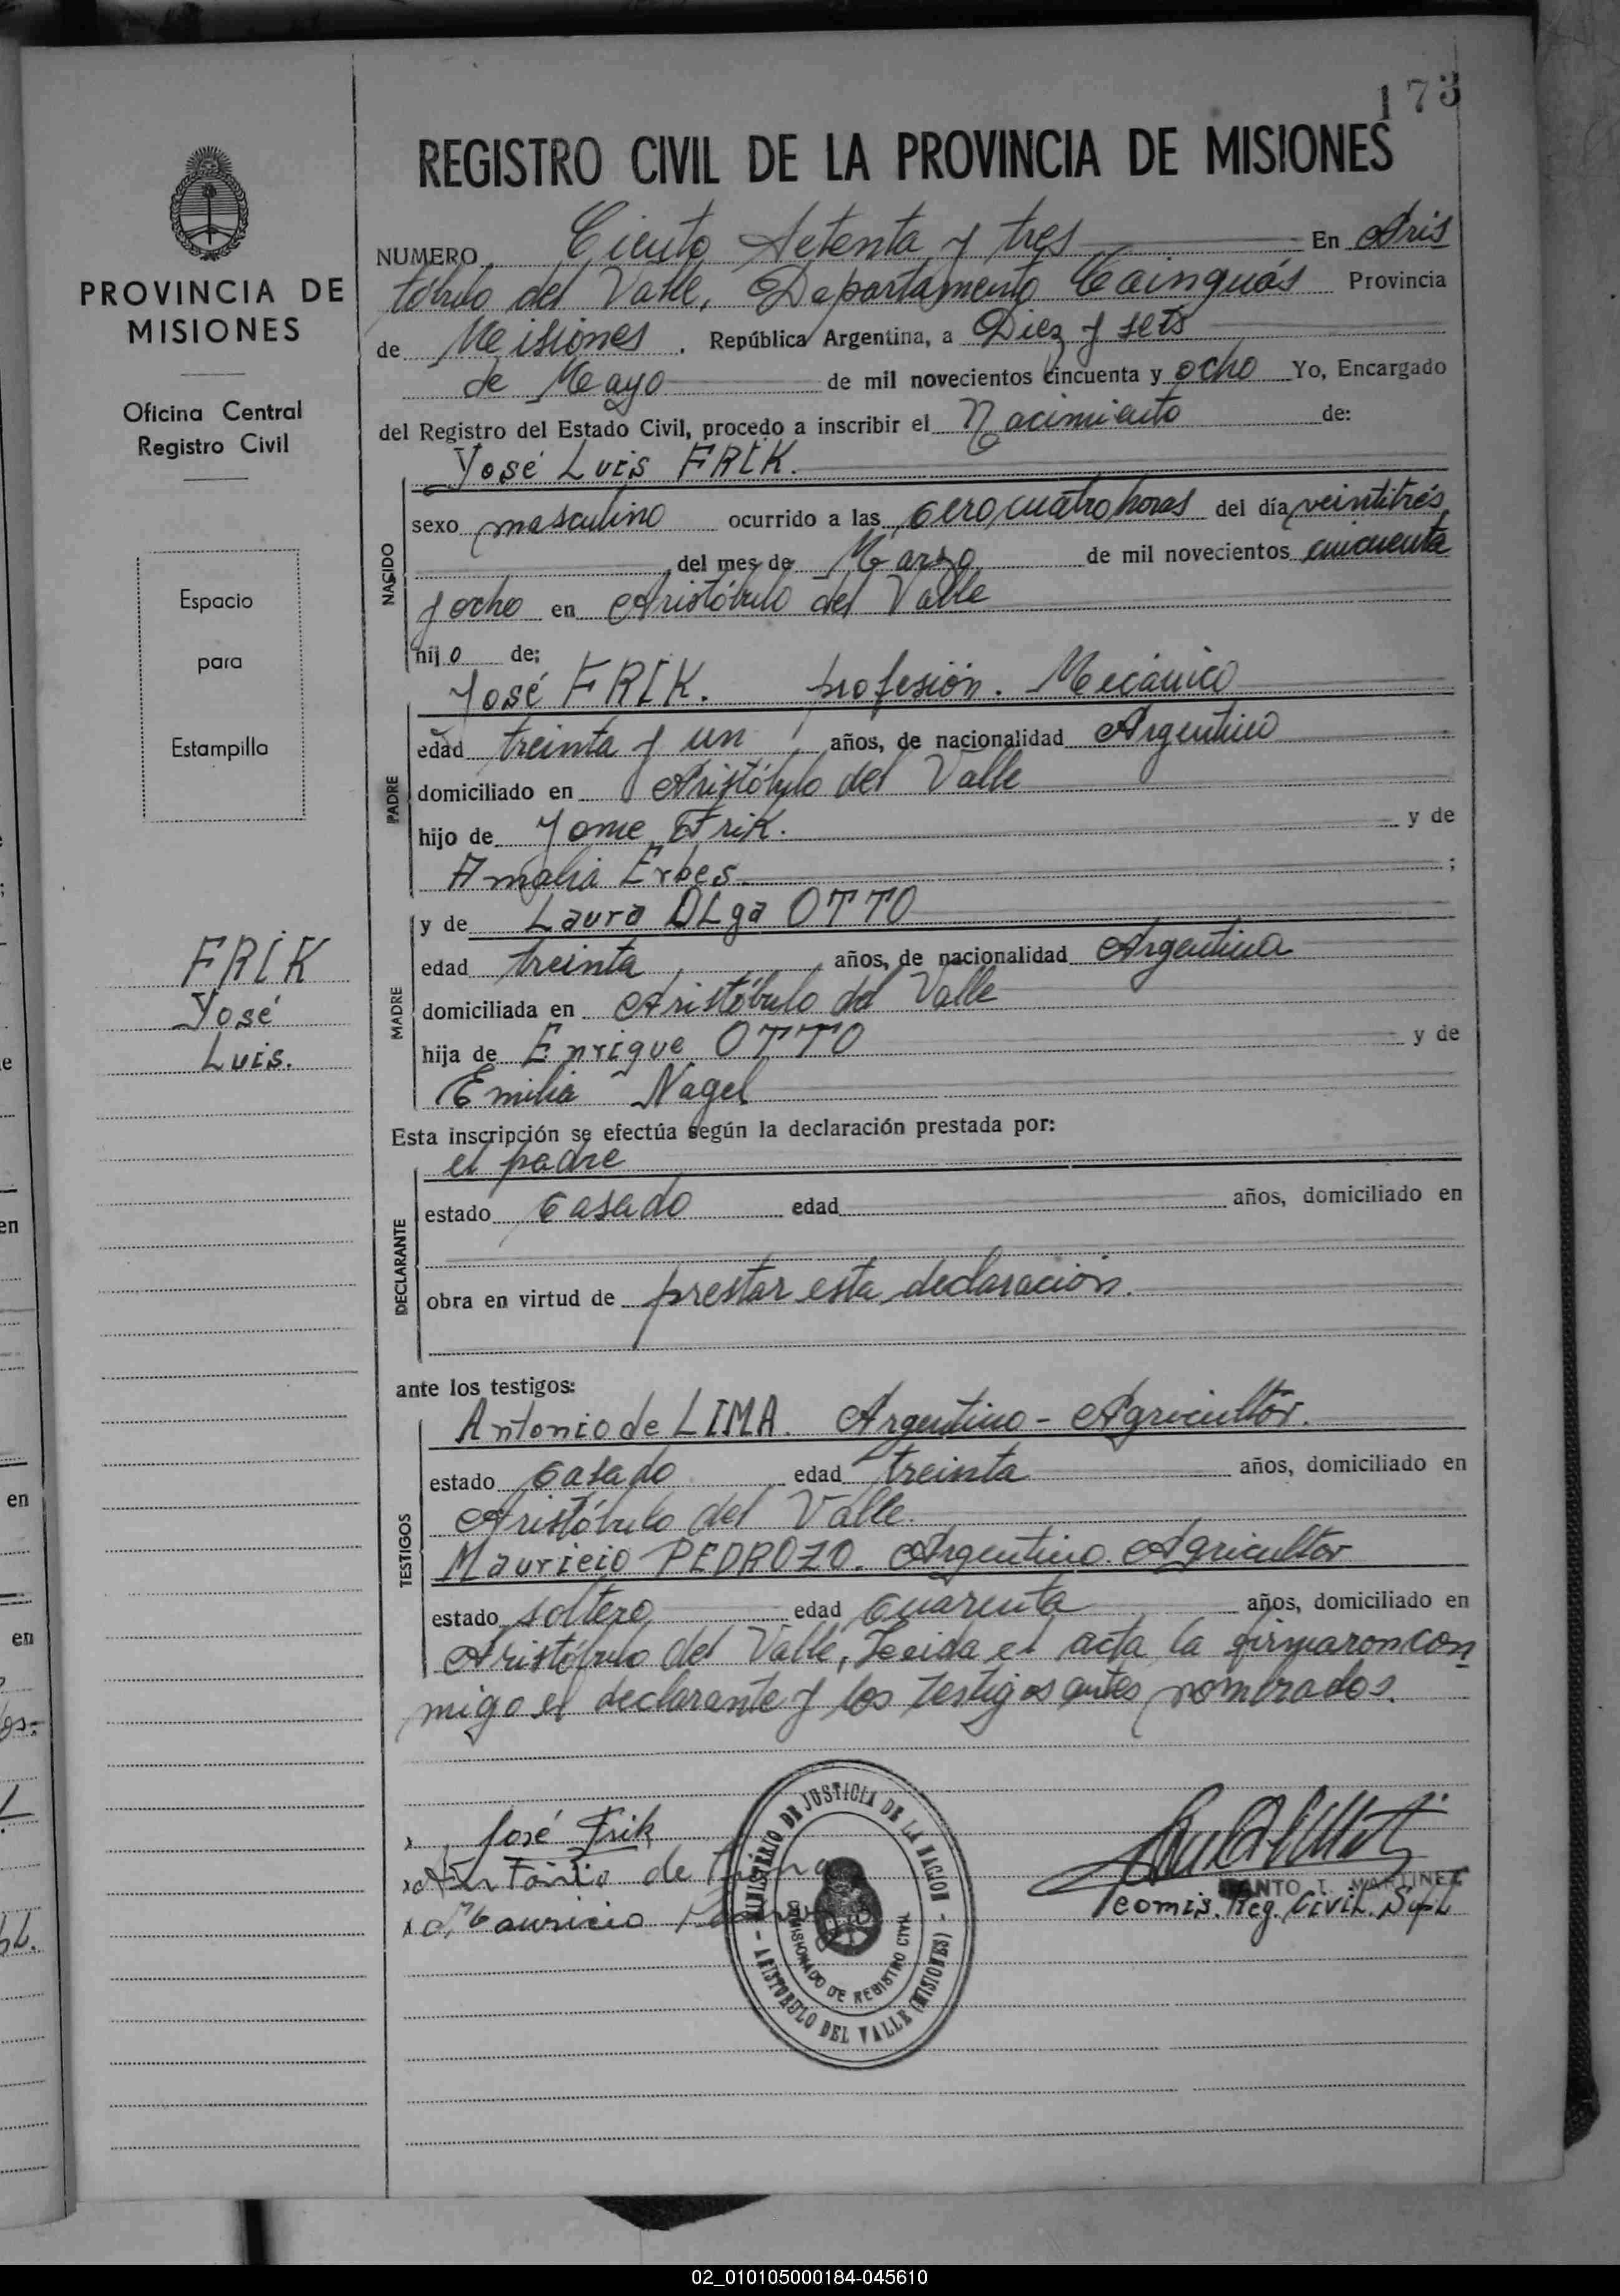 173
REGISTRO CIVIL DE LA PROVINCIA DE MISIONES
PROVINCIA DE
MISIONES
Oficina Central
Registro Civil
Espacio
para
Estampilla
FRIK
José
Luis.
NUMERO Ciento Setenta y tres En Aris
tóbulo del Valle, Departamento Cainguás Provincia
de Misiones. República Argentina, a Diez y seis
de Mayo de mil novecientos cincuenta y ocho Yo, Encargado
del Registro del Estado Civil, procedo a inscribir el Nacimiento de:
José Luis FRIK.
NACIDO
sexo masculino ocurrido a las cero cuatro horas del día veintitrés
del mes de Marzo de mil novecientos cincuenta
y ocho en Aristóbulo del Valle
hijo de:
José FRIK. profesión. Mecánico
PADRE
edad treinta y un años, de nacionalidad Argentino
domiciliado en Aristóbulo del Valle
hijo de Jome Frik. y de
Amalia Erbes ;
y de Laura OLga OTTO
MADRE
edad treinta años, de nacionalidad Argentina
domiciliada en Aristóbulo del Valle
hija de Enrique OTTO y de
Emilia Nagel
Esta inscripción se efectúa según la declaración prestada por:
el padre
DECLARANTE
estado Casado edad años, domiciliado en
obra en virtud de prestar esta declaración.
ante los testigos:
Antonio de LIMA. Argentino - Agricultor.
TESTIGOS
estado casado edad treinta años, domiciliado en
Aristóbulo del Valle.
Mauricio PEDROZO. Argentino. Agricultor
estado soltero edad cuarenta años, domiciliado en
Aristóbulo del Valle, Leida el acta la firmaron con
migo el declarante y los testigos antes nombrados.
José Frik
Antonio de Lima
Mauricio
MINISTERIO DE JUSTICIA DE LA NACION
- ARISTOBULO DEL VALLE (MISIONES) -
COMISIONADO DE REGISTRO CIVIL
SANTO T. MARTINEZ
Comis. Reg. Civil. Supl
02_010105000184-045610